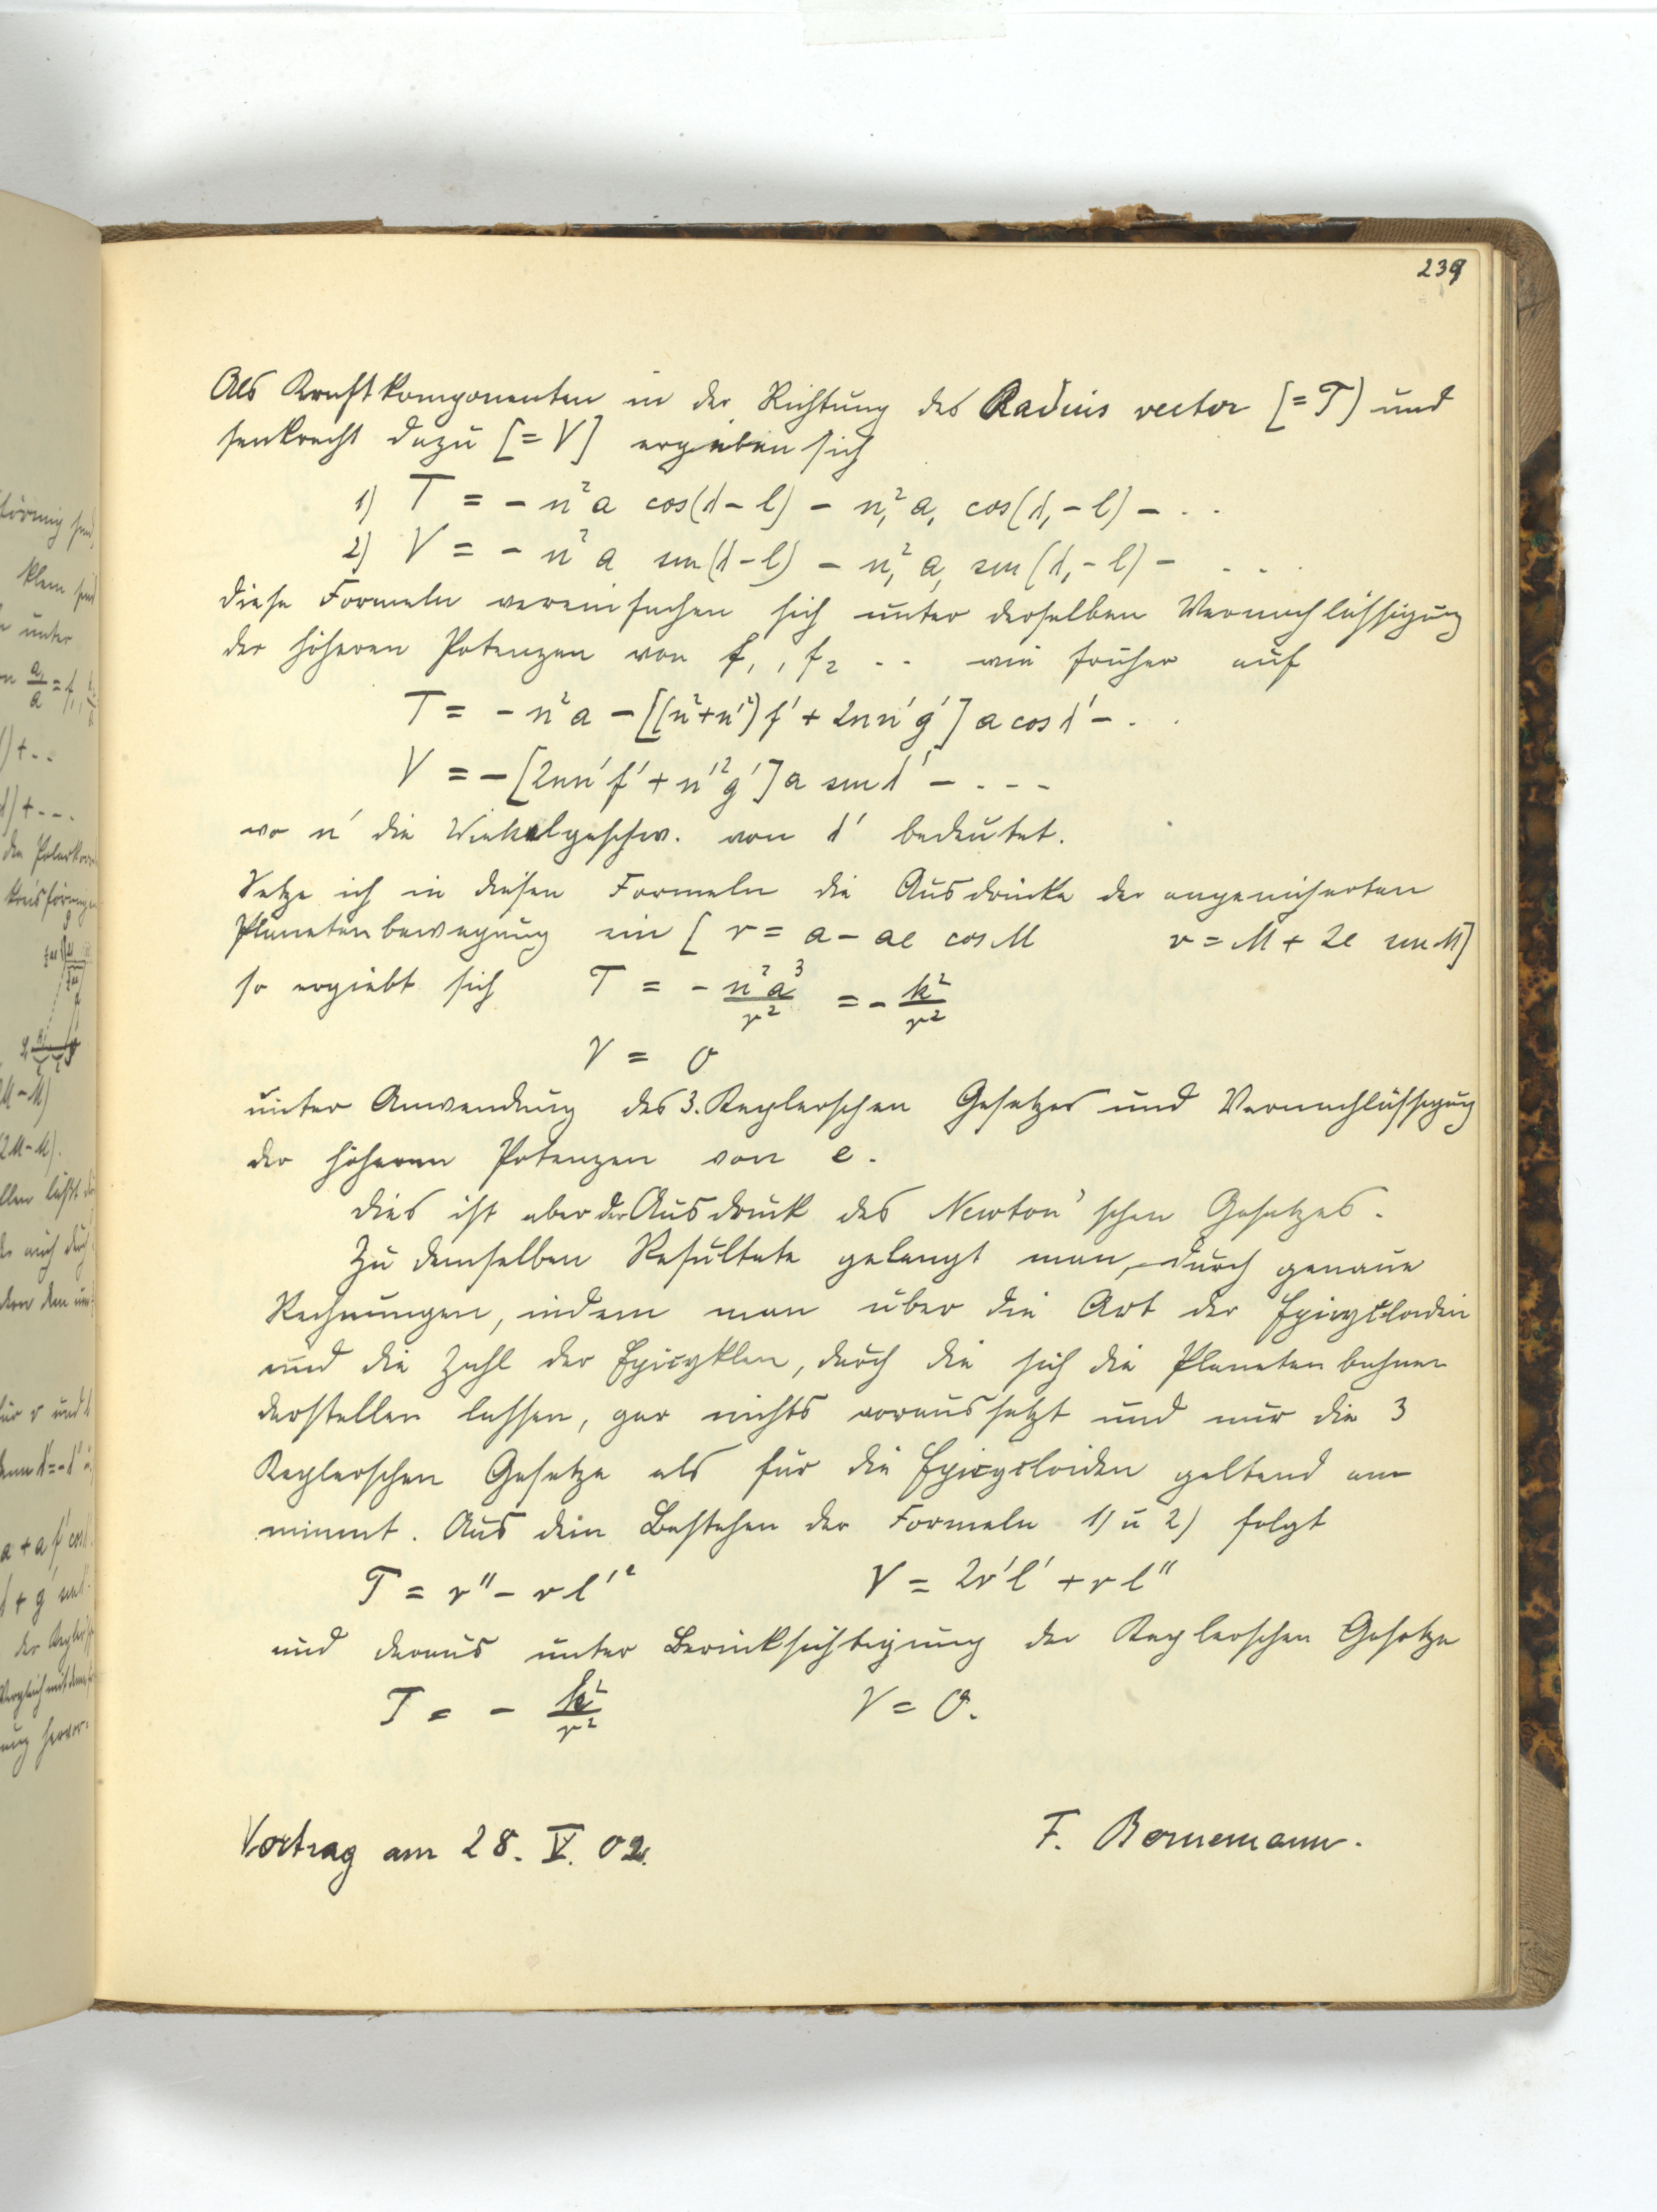 239
Als Kraftkomponenten in der Richtung des Radius vector [=T) und
senkrecht dazu [=V] ergeben sich
1) T = - n²a cos(λ-l) - n₁²a₁ cos(λ₁-l) - . .
2) V = - n²a sin(λ-l) - n₁²a₁ sin(λ₁-l) - . . .
diese Formeln vereinfachen sich unter derselben Vernachlässigung
der höheren Potenzen von f₁, f₂ .. wie früher auf
T = - n²a - [(n²+n'²) f' + 2nn'g'] a cos λ' - . .
V = - [2nn'f' + n'²g'] a sin λ' - . . .
wo n' die Winkelgeschw. von λ' bedeutet.
Setze ich in diesen Formeln die Ausdrücke der angenäherten
Planetenbewegung ein [ r = a - ae cos M v = M + 2e sin M]
so ergiebt sich T = - n²a³/r² = - k²/r²
V = 0
unter Anwendung des 3. Keplerschen Gesetzes und Vernachlässigung
der höheren Potenzen von e.
Dies ist aber der Ausdruck des Newton'schen Gesetzes.
Zu demselben Resultate gelangt man, durch genaue
Rechnungen, indem man über die Art der Epicycloiden
und die Zahl der Epicyklen, durch die sich die Planetenbahnen
darstellen lassen, gar nichts voraussetzt und nur die 3
Keplerschen Gesetze als für die Epicycloiden geltend an-
nimmt. Aus dem Bestehen der Formeln 1) u 2) folgt
T = r'' - rl'² V = 2r'l' + rl''
und daraus unter Berücksichtigung der Keplerschen Gesetze
T = - k²/r² V = 0.
Vortrag am 28. V. 02. F. Bornemann.